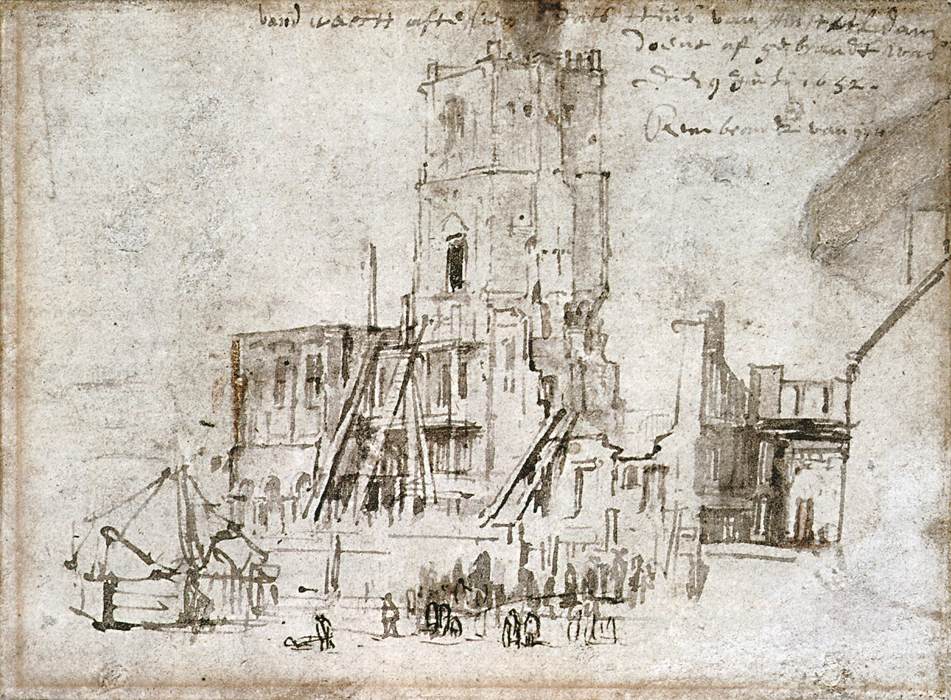 vand waech afte sien stats huis van Amsteldam
doent af gebrandt was
den 9 Julij 1652.
Rembrandt van rijn